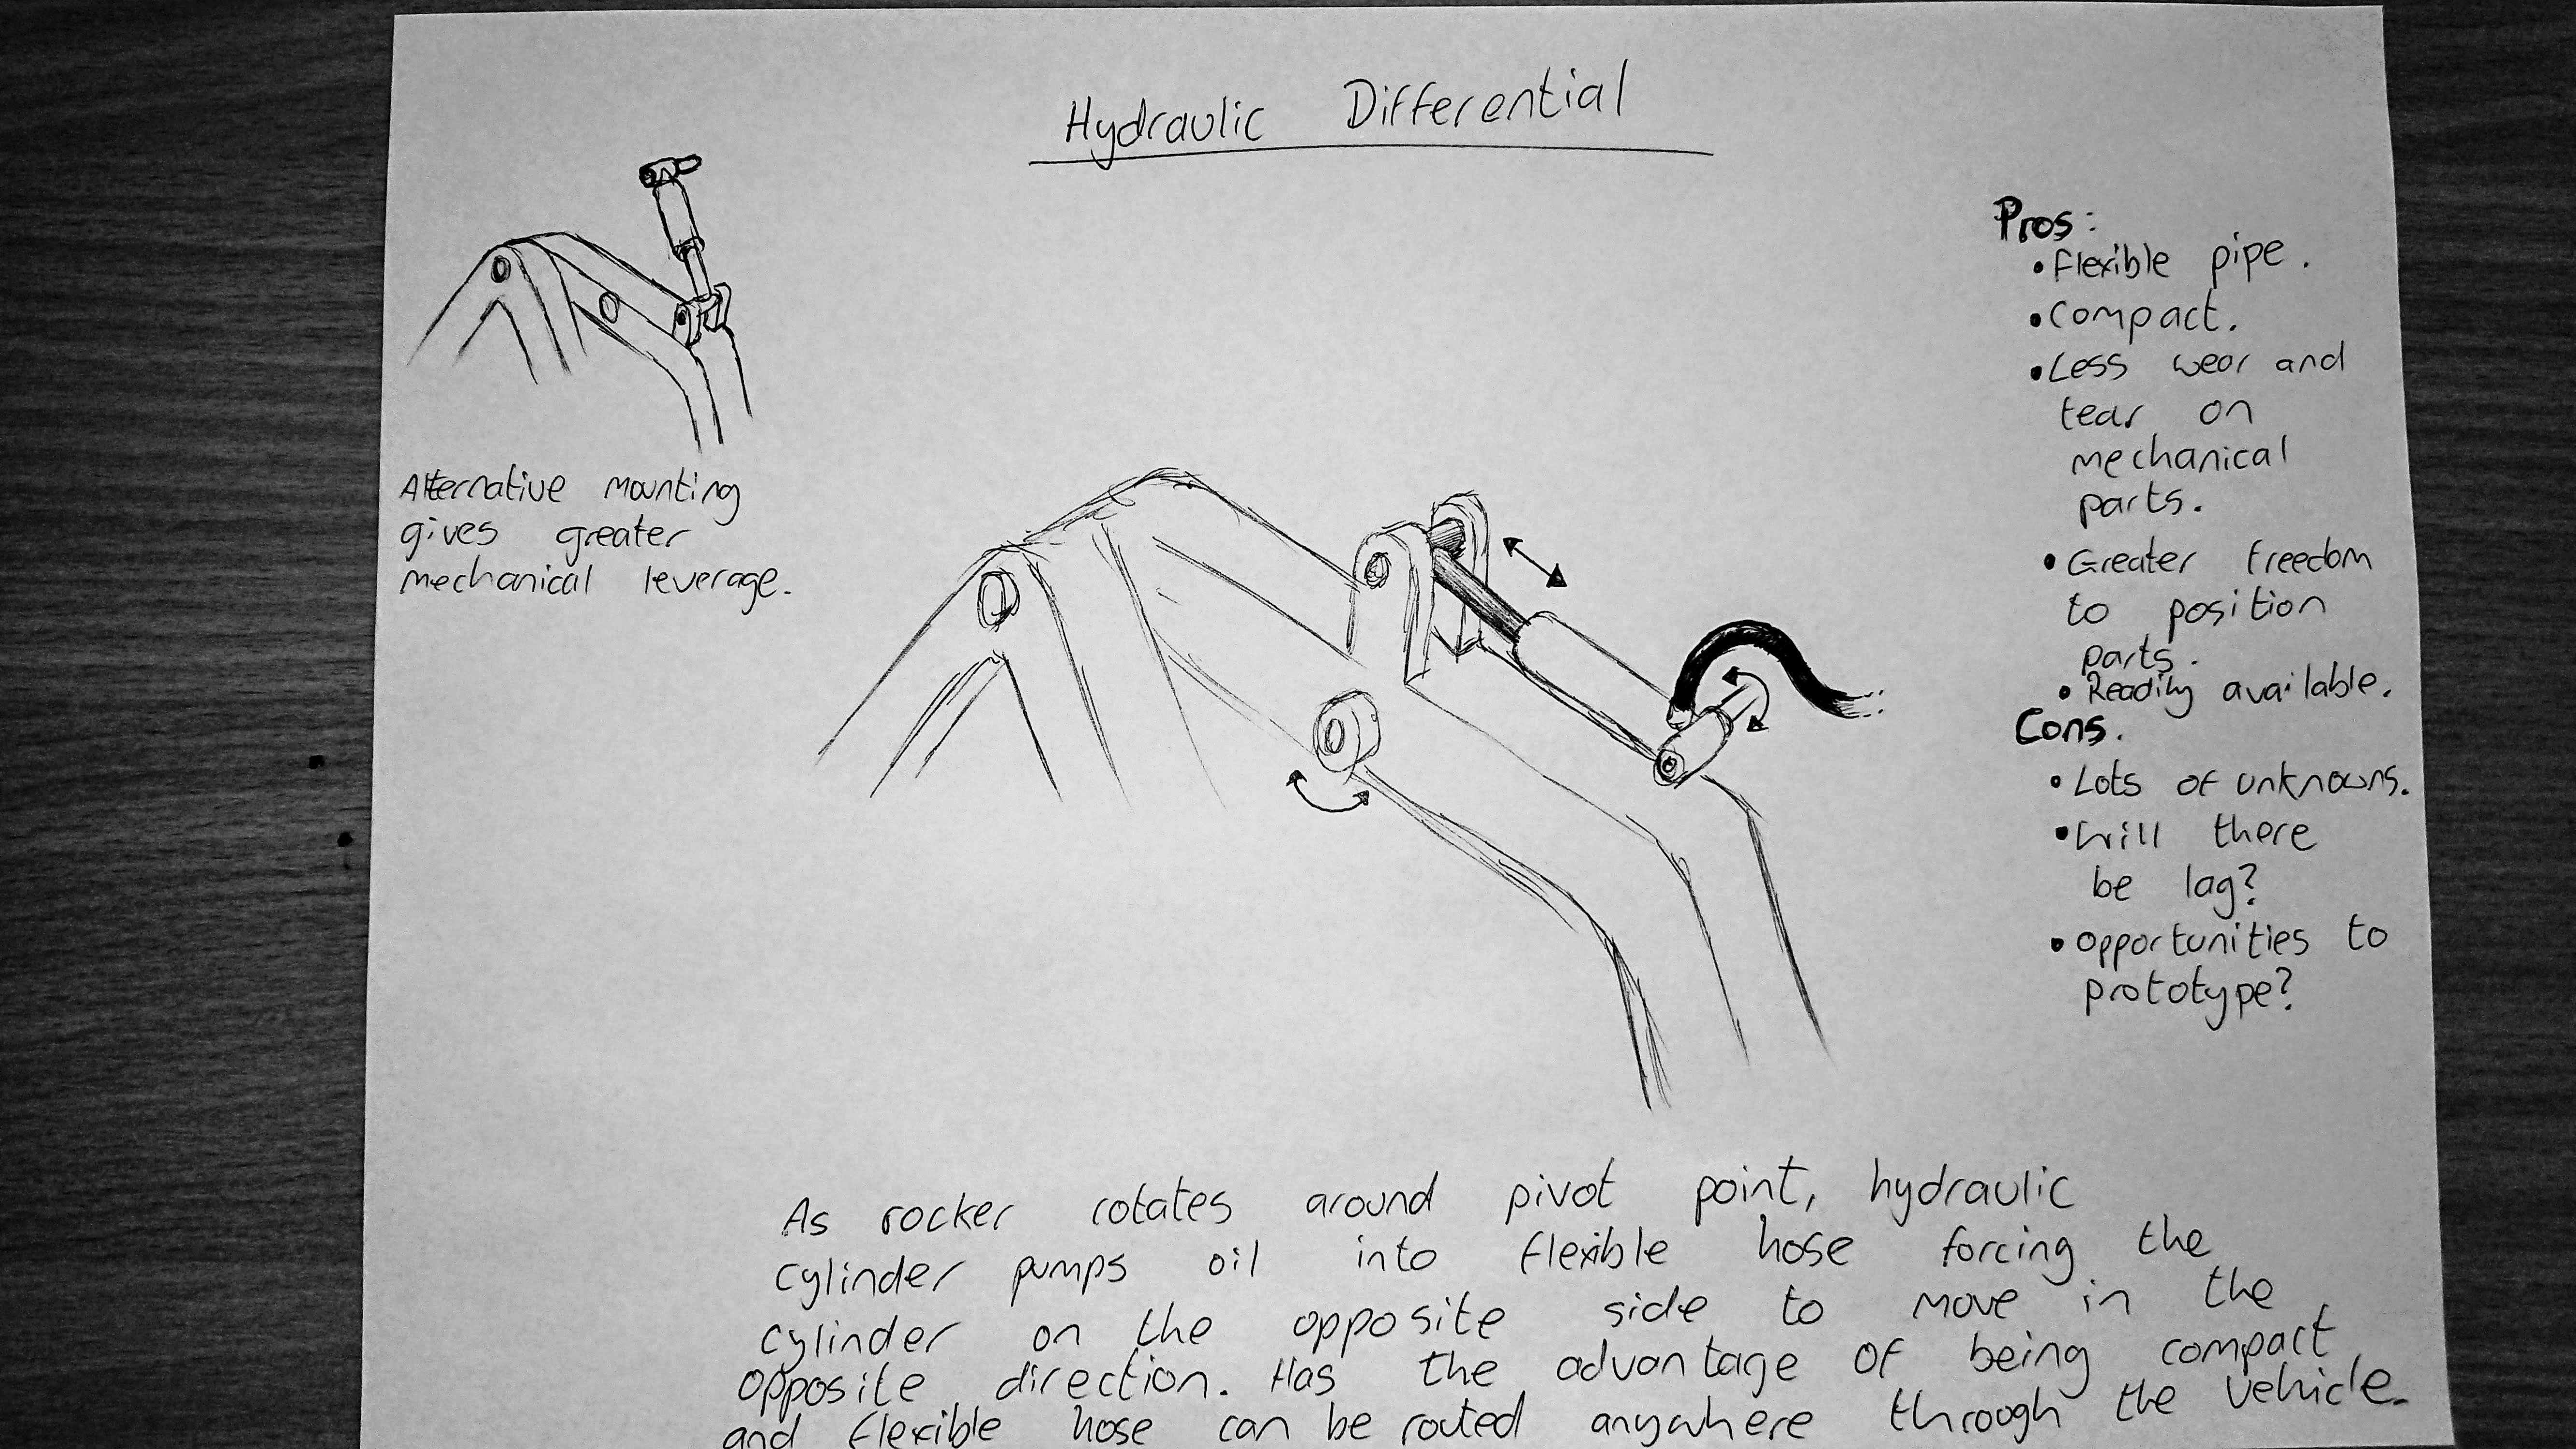 Hydraulic Differential
Alternative mounting
gives greater
mechanical leverage.
Pros:
• Flexible pipe.
• Compact.
• Less wear and
tear on
mechanical
parts.
• Greater freedom
to position
parts.
• Readily available.
Cons.
• Lots of unknowns.
• Will there
be lag?
• Opportunities to
prototype?
As rocker rotates around pivot point, hydraulic
cylinder pumps oil into flexible hose forcing the
cylinder on the opposite side to move in the
opposite direction. Has the advantage of being compact
and flexible hose can be routed anywhere through the vehicle.